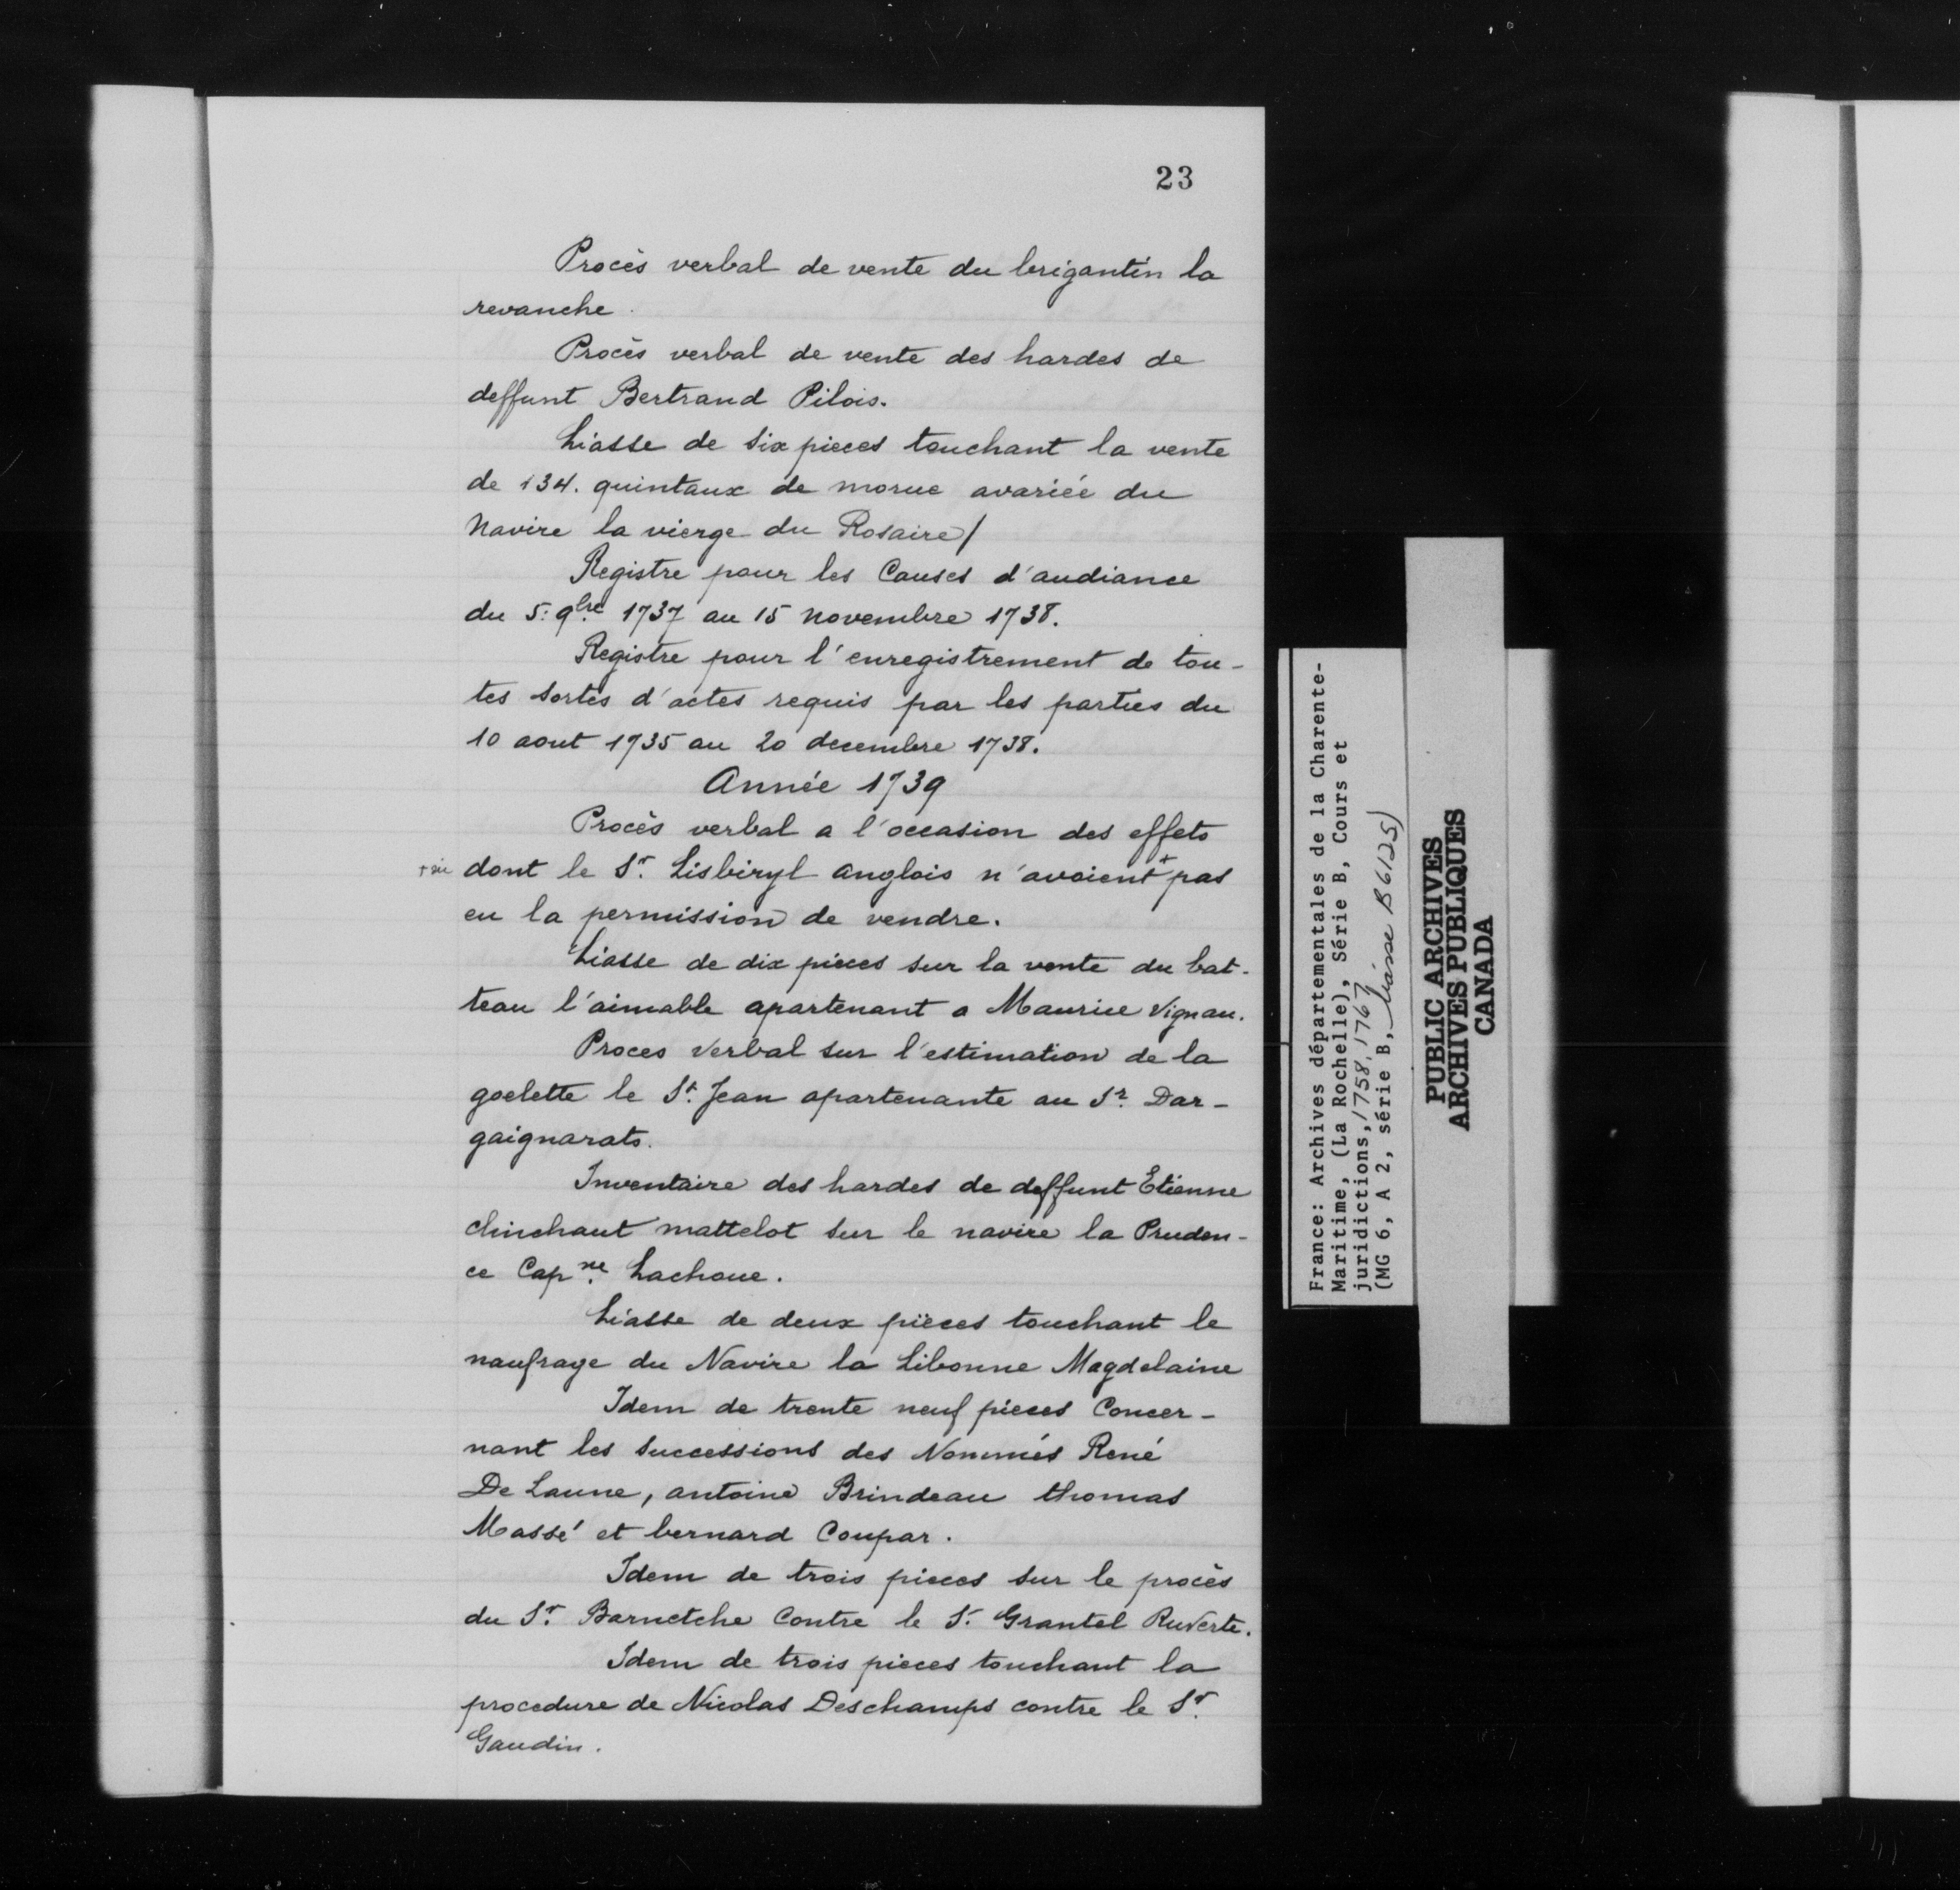 23
Procès verbal de vente du brigantin la
revanche.
Procès verbal de vente des hardes de
deffunt Bertrand Pilois.
Liasse de six pieces touchant la vente
de 134. quintaux de morue avariée du
Navire la vierge du Rosaire/
Registre pour les Causes d'audiance
du 5: 9bre 1737 au 15 novembre 1738.
Registre pour l'enregistrement de tou-
tes sortes d'actes requis par les parties du
10 aout 1735 au 20 decembre 1738.
Année 1739
Procès verbal a l'occasion des effets
+ dont le Sr. Lisbiryl anglois n'avoient + pas
eu la permission de vendre.
Liasse de dix pieces sur la vente du bat-
teau l'aimable apartenant a Maurice Vignau.
Proces Verbal sur l'estimation de la
goelette le St. Jean apartenante au Sr. Dar-
gaignarats.
Inventaire des hardes de deffunt Etienne
chinchaut mattelot sur le navire la Pruden-
ce Capne. Lachoue.
Liasse de deux pièces touchant le
naufrage du Navire la Libonne Magdelaine
Idem de trente neuf pieces Concer-
nant les successions des Nommés René
De Laune, antoine Brindeau thomas
Massé et bernard Coupar.
Idem de trois pieces sur le procès
du Sr. Barnetche Contre le Sr. Grantel Ruverte.
Idem de trois pieces touchant la
procedure de Nicolas Deschamps contre le Sr.
Gaudin.
France: Archives départementales de la Charente-
Maritime, (La Rochelle), Série B, Cours et
juridictions, 1758, 1767
(MG 6, A 2, série B, liasse B6125)
PUBLIC ARCHIVES
ARCHIVES PUBLIQUES
CANADA